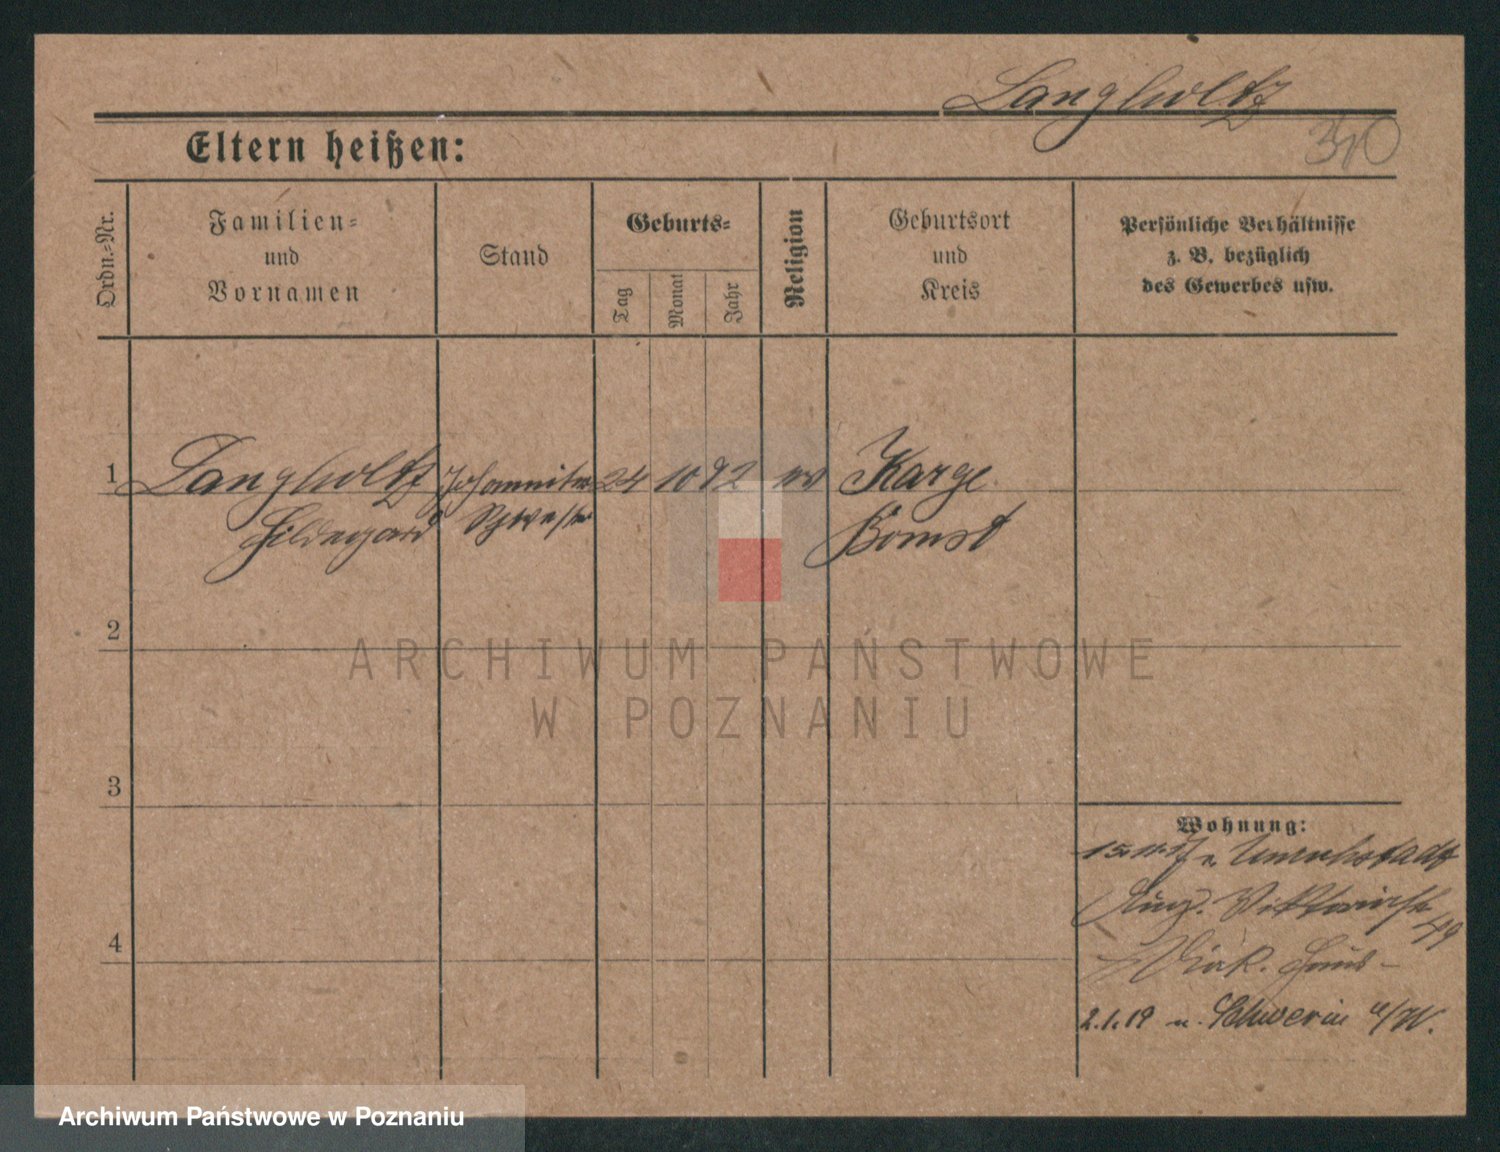 Langholtz
Eltern heißen:
Ordn.-Nr.
Familien-
und
Vornamen
Stand
Geburts-
Tag
Monat
Jahr
Religion
Geburtsort
und
Kreis
Persönliche Verhältnisse
z. B. bezüglich
des Gewerbes usw.
1 Langholtz Johanniter 24 10 92 ev Karge
Hildegard Schwester Bomst
2
ARCHIWUM PAŃSTWOWE
W POZNANIU
3
Wohnung:
15.11.17 v. Unruhstadt
Viktoriastr.
49
Diak. Haus-
4
2.1.19 n. Schwerin a/W.
Archiwum Państwowe w Poznaniu